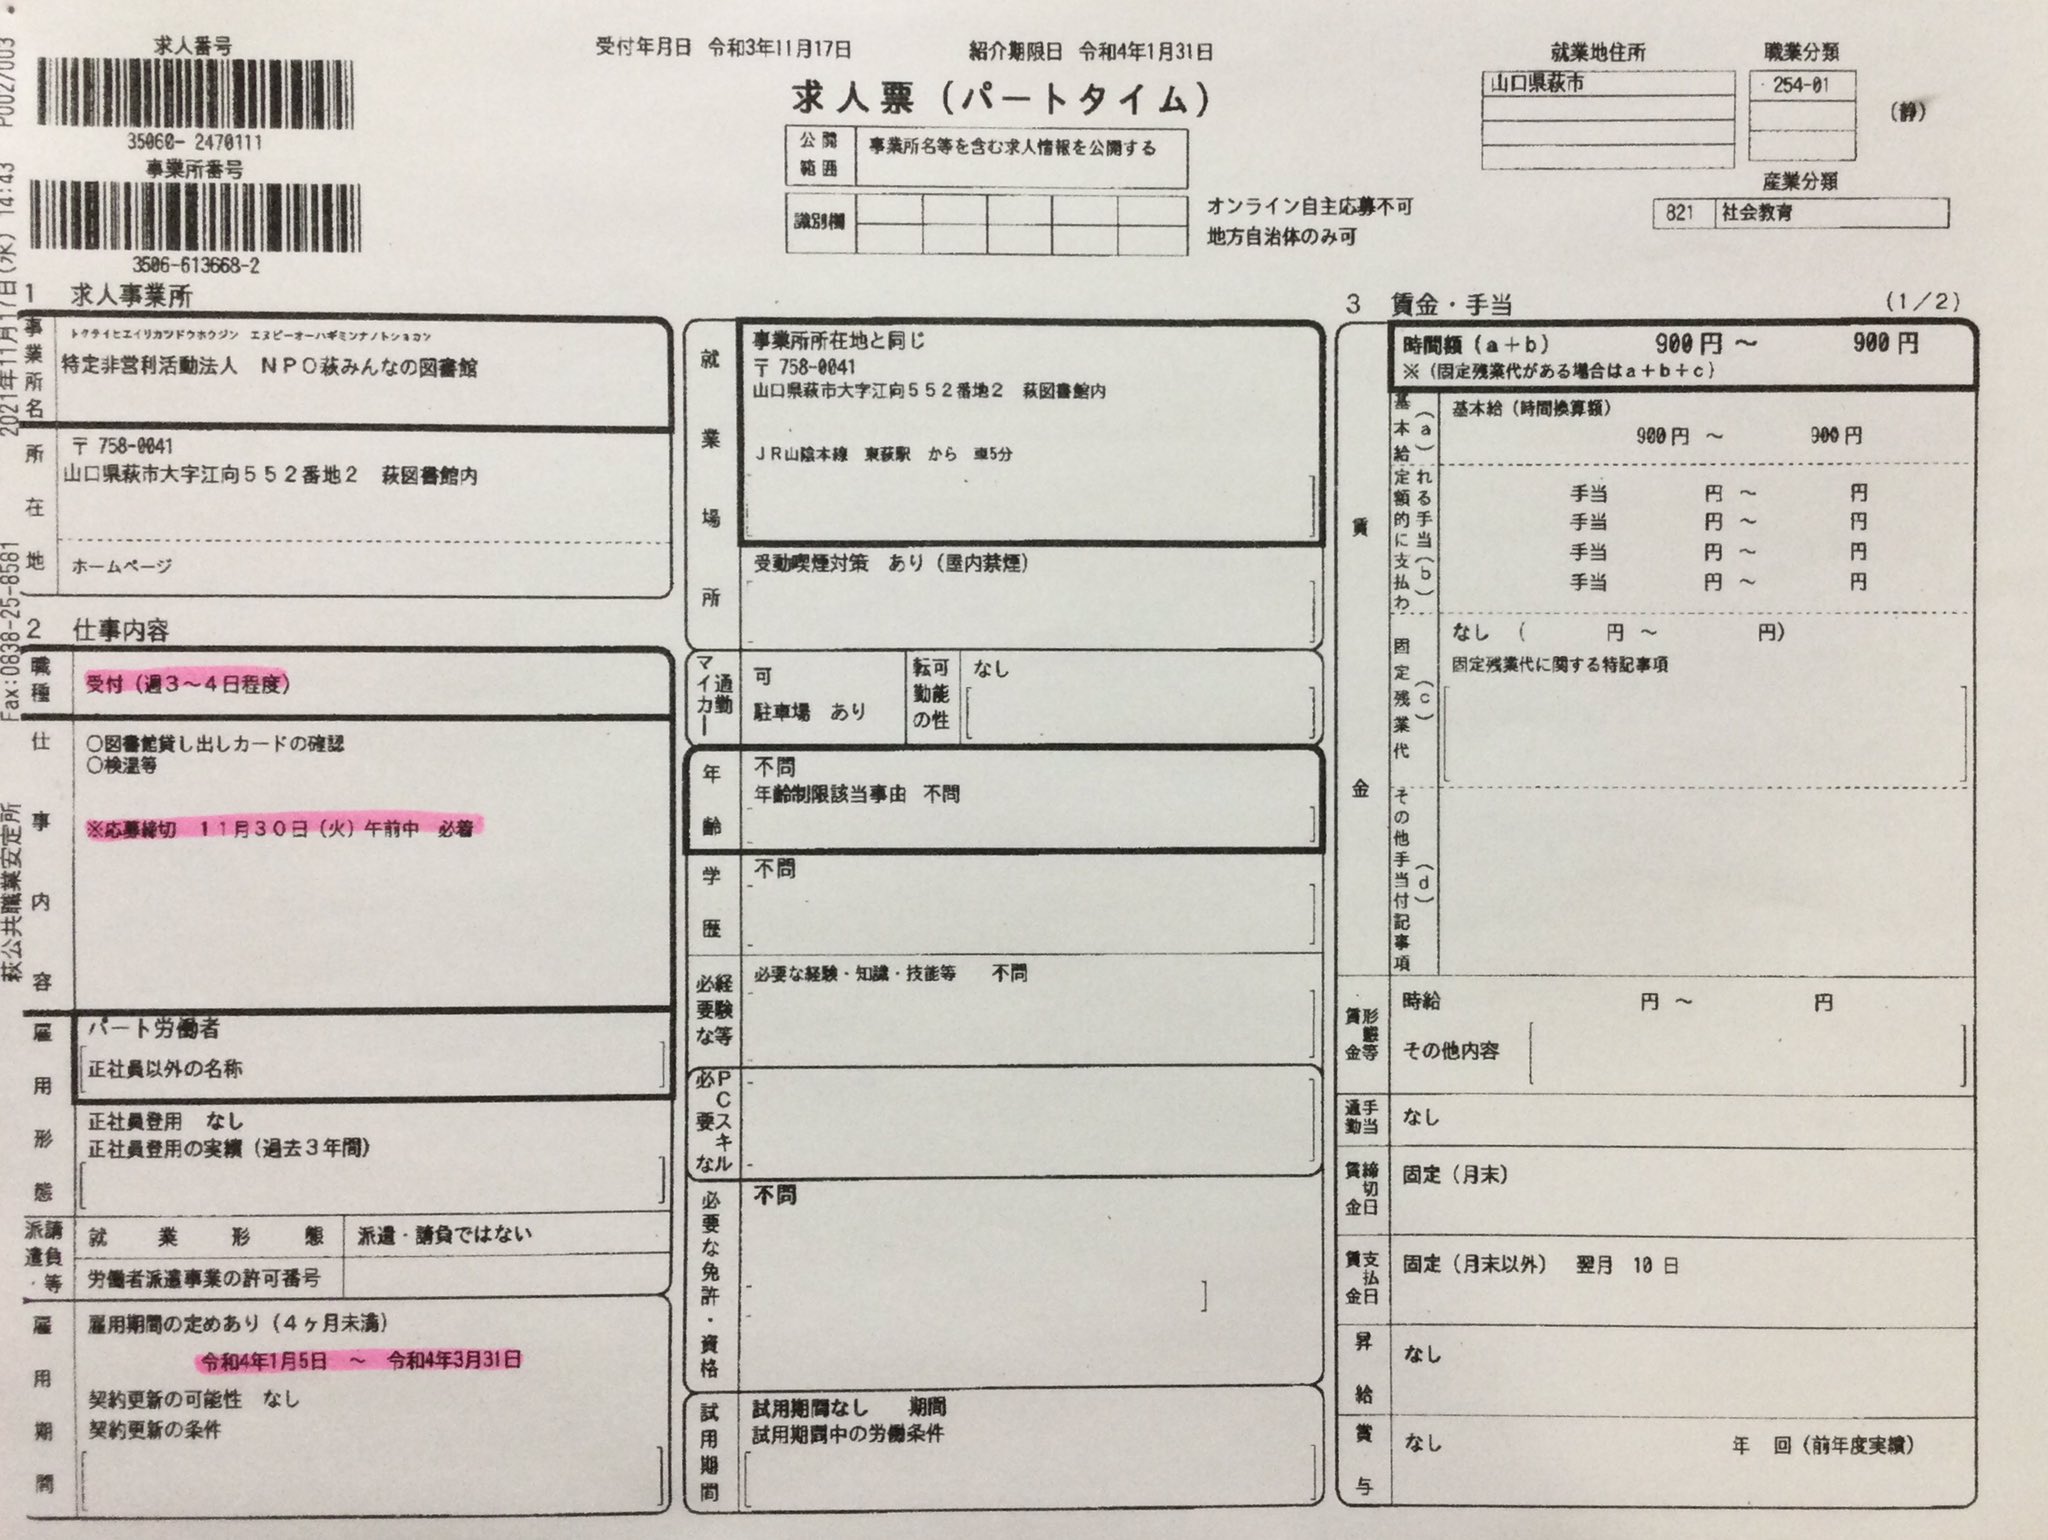 求人番号
35060- 2470111
事業所番号
3506-613668-2
受付年月日 令和3年11月17日 紹介期限日 令和4年1月31日
求人票（パートタイム）
公開範囲 事業所名等を含む求人情報を公開する
識別欄
オンライン自主応募不可
地方自治体のみ可
就業地住所
山口県萩市
職業分類
254-01
（静）
産業分類
821 社会教育
2021年11月17日(水) 14:43 P002/003
萩公共職業安定所 Fax:0838-25-8581
1 求人事業所
事業所名
トクテイヒエイリカツドウホウジン エヌピーオーハギミンナノトショカン
特定非営利活動法人 ＮＰＯ萩みんなの図書館
所在地
〒 758-0041
山口県萩市大字江向５５２番地２ 萩図書館内
ホームページ
2 仕事内容
職種
受付（週３～４日程度）
仕事内容
○図書館貸し出しカードの確認
○検温等
※応募締切 １１月３０日（火）午前中 必着
雇用形態
パート労働者
正社員以外の名称
正社員登用 なし
正社員登用の実績（過去３年間）
派遣・請負等
就業形態 派遣・請負ではない
労働者派遣事業の許可番号
雇用期間
雇用期間の定めあり（４ヶ月未満）
令和4年1月5日 ～ 令和4年3月31日
契約更新の可能性 なし
契約更新の条件
就業場所
事業所所在地と同じ
〒 758-0041
山口県萩市大字江向５５２番地２ 萩図書館内
ＪＲ山陰本線 東萩駅 から 車5分
受動喫煙対策 あり（屋内禁煙）
マイカー通勤
可
駐車場 あり
転勤の可能性
なし
年齢
不問
年齢制限該当事由 不問
学歴
不問
必要な経験等
必要な経験・知識・技能等 不問
必要なPCスキル
必要な免許・資格
不問
試用期間
試用期間なし 期間
試用期間中の労働条件
3 賃金・手当 (1/2)
賃金
時間額（a＋b） 900 円 ～ 900 円
※（固定残業代がある場合はa＋b＋c）
基本給（a）
基本給（時間換算額）
900 円 ～ 900 円
定額的に支払われる手当（b）
手当 円 ～ 円
手当 円 ～ 円
手当 円 ～ 円
手当 円 ～ 円
固定残業代（c）
なし （ 円 ～ 円）
固定残業代に関する特記事項
その他手当付記事項（d）
賃金形態等
時給 円 ～ 円
その他内容
通勤手当
なし
賃金締切日
固定（月末）
賃金支払日
固定（月末以外） 翌月 10 日
昇給
なし
賞与
なし 年 回（前年度実績）